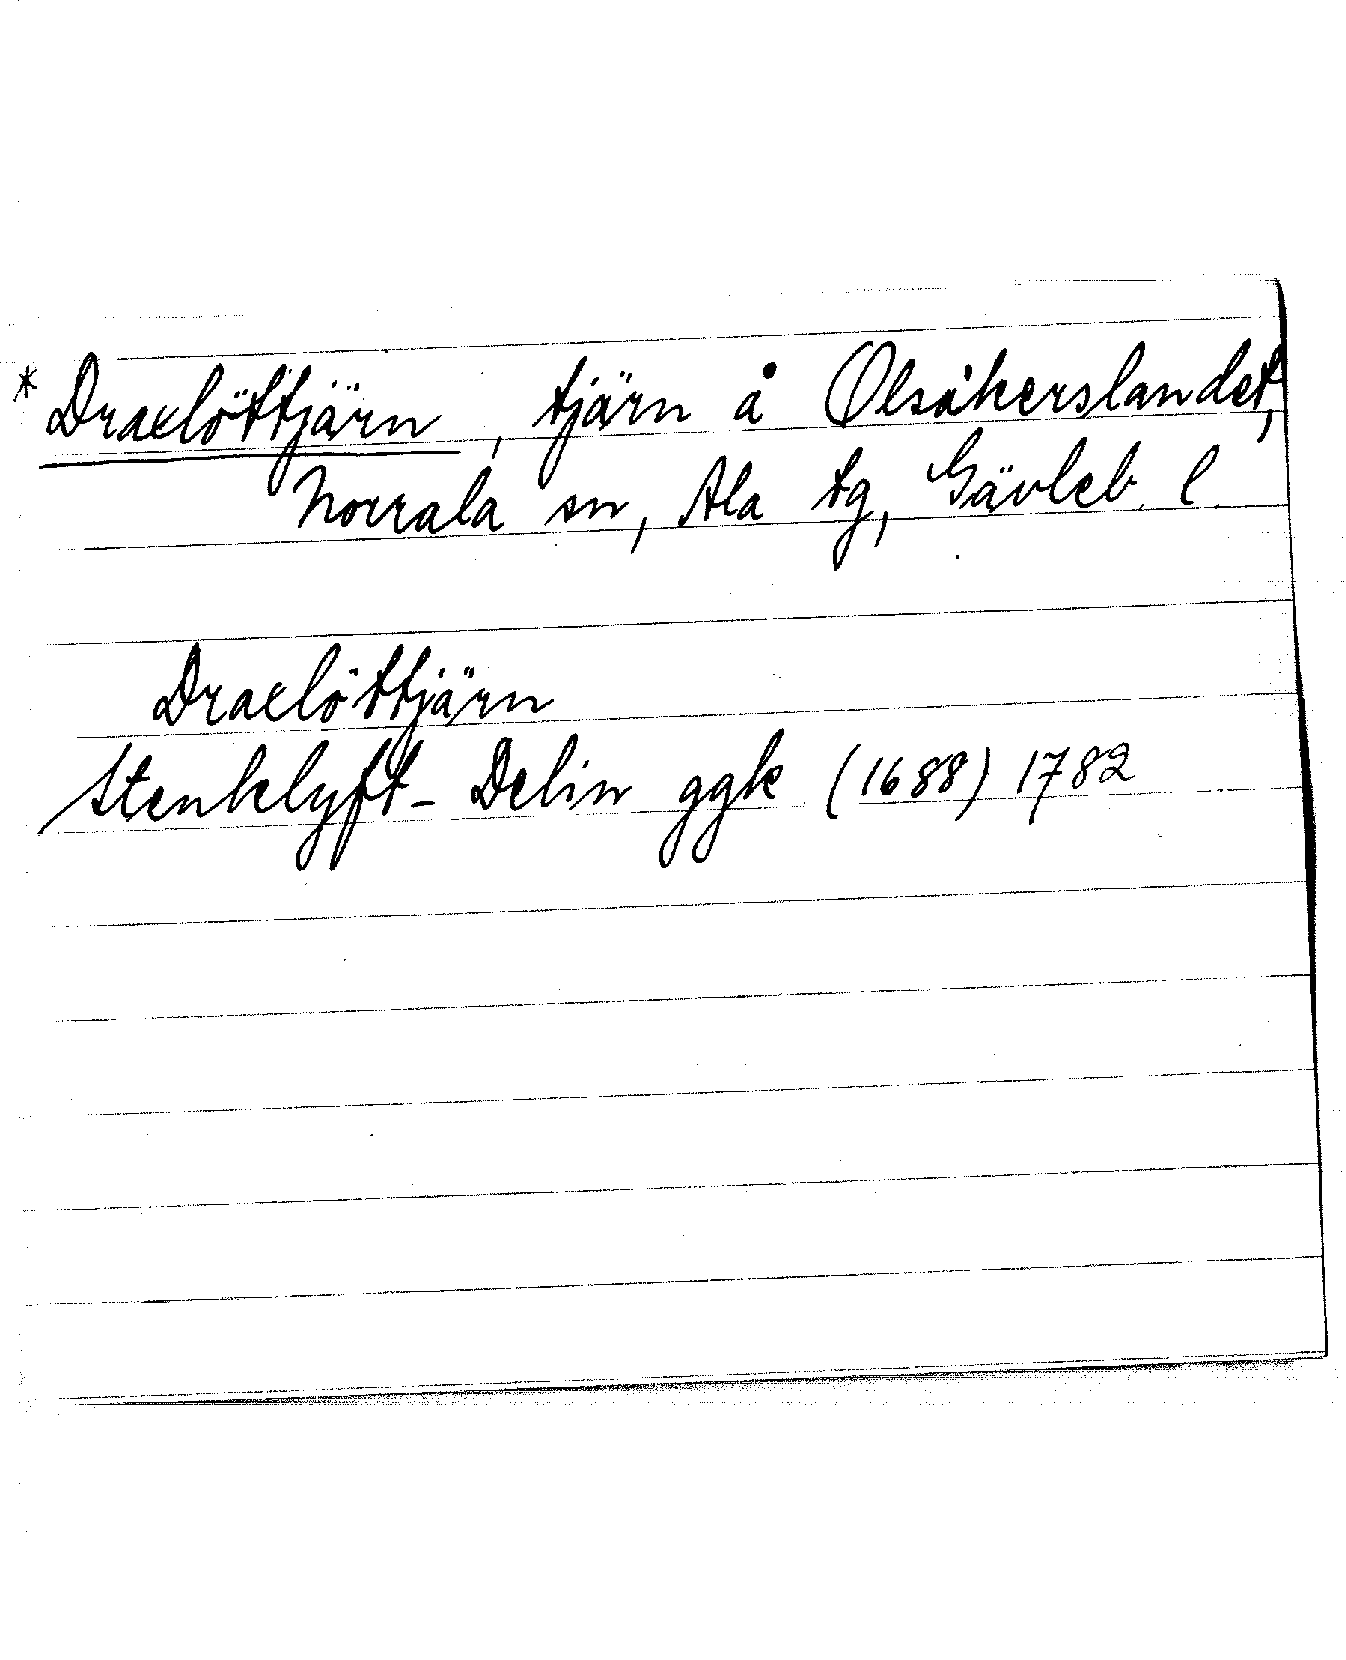 * Draelöttjärn, tjärn å Olsåkerslandet,
Norrala sn, Ala tg, Gävleb. l
Draelöttjärn
Stenklyft- Delin ggk (1688) 1782